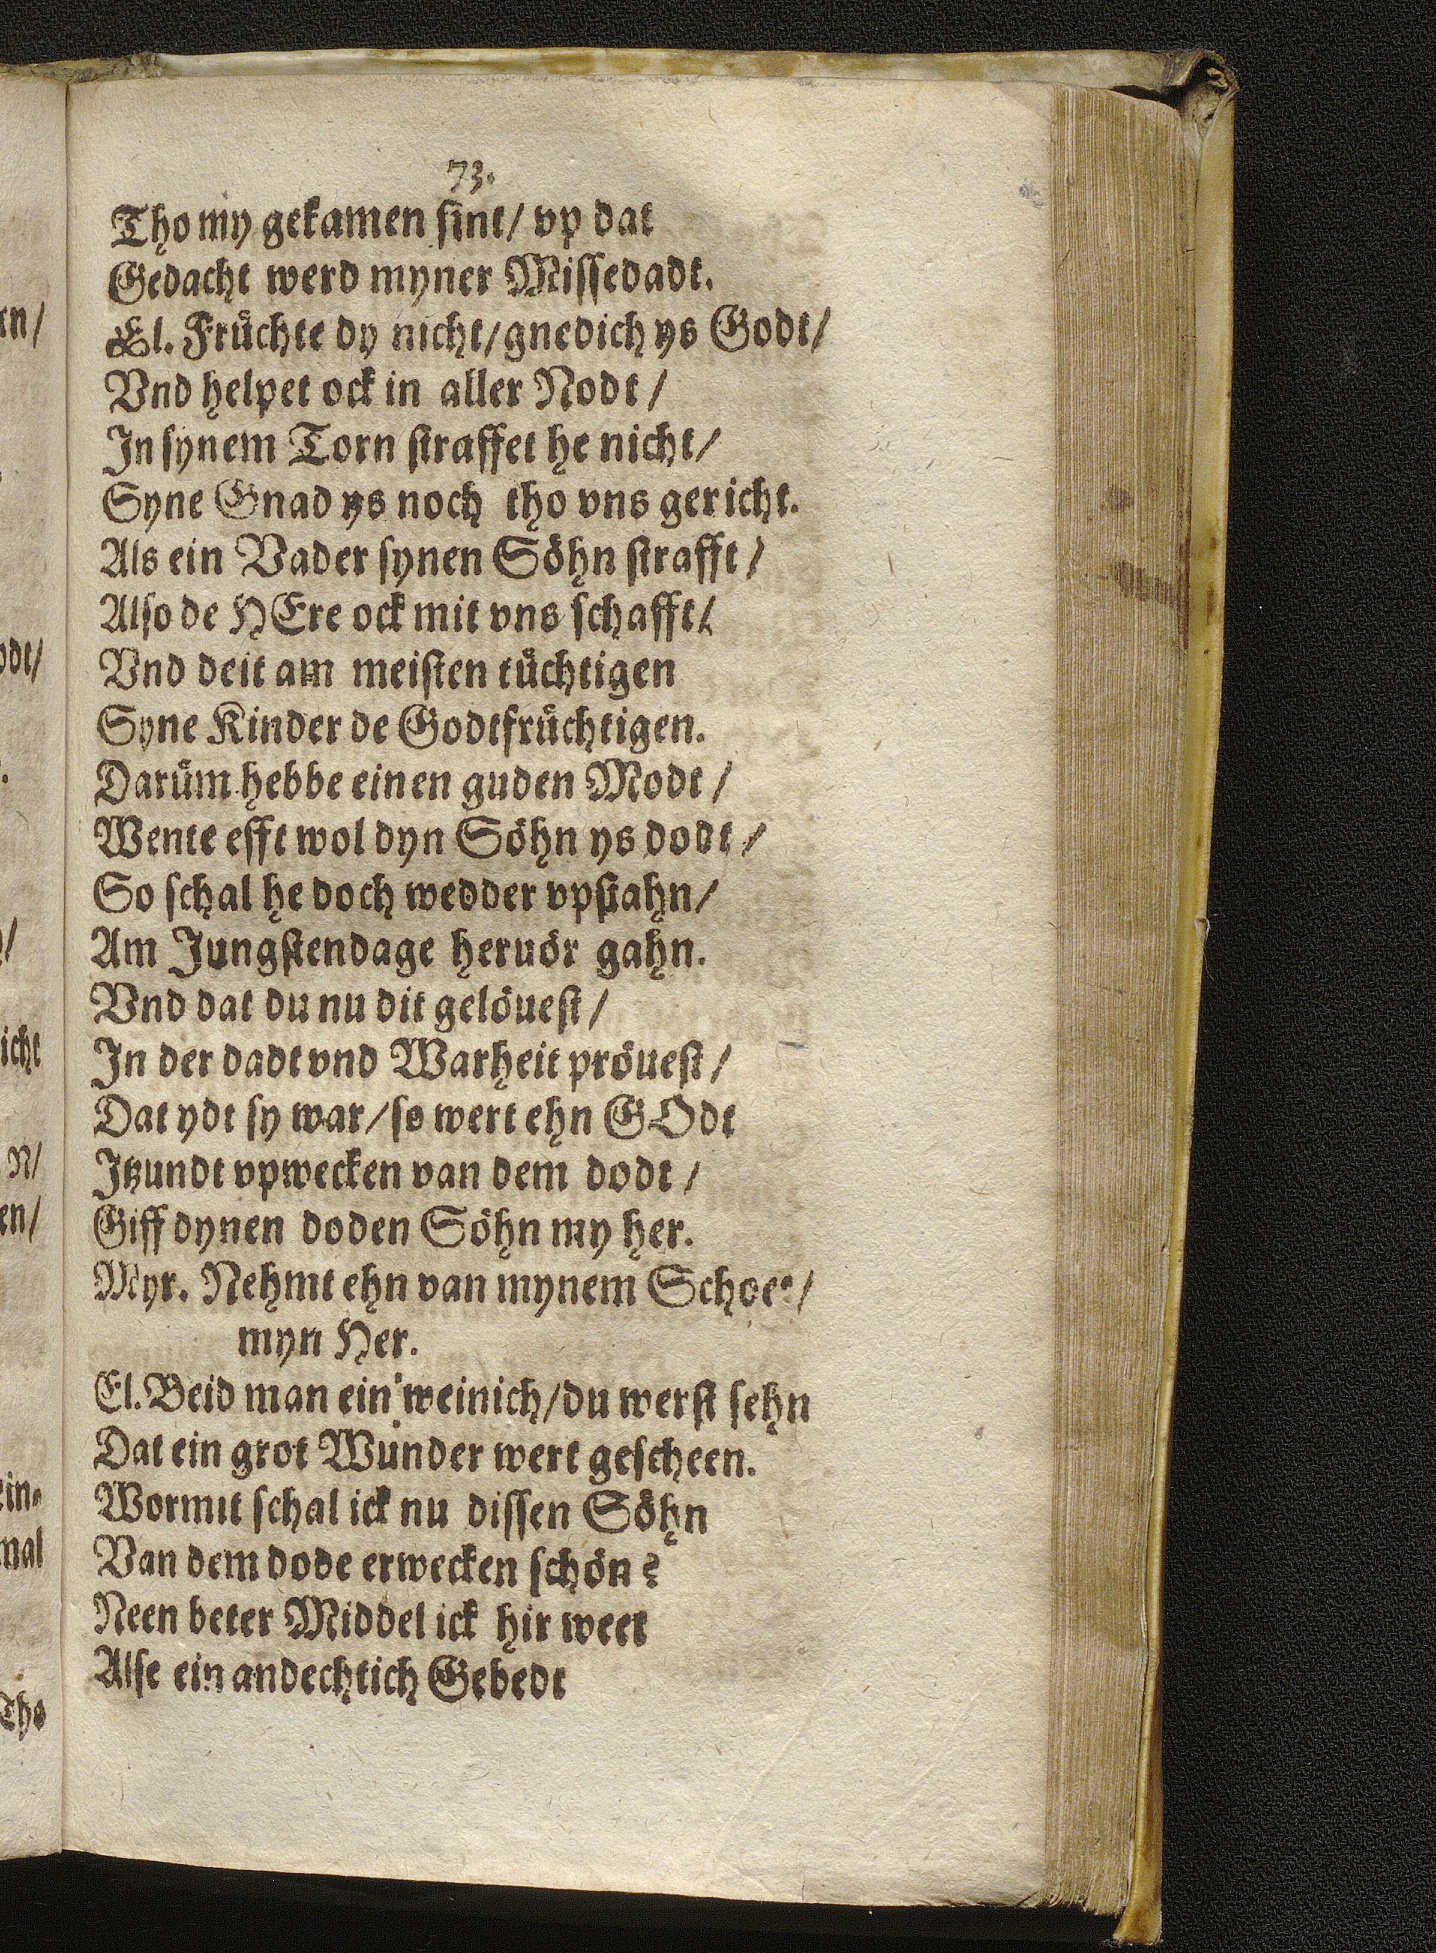 73.
Tho my gekamen sint/ vp dat
Gedacht werd myner Missedadt.
El. Früchte dy nicht/ gnedich ys Godt/
Vnd helpet ock in aller Nodt /
In synem Torn straffet he nicht/
Syne Gnad ys noch tho vns gericht.
Als ein Vader synen Söhn strafft /
Also de HEre ock mit vns schafft/
Vnd deit am meisten tüchtigen
Syne Kinder de Godtfrüchtigen.
Darüm hebbe einen guden Modt /
Wente efft wol dyn Söhn ys dodt /
So schal he doch wedder vpstahn/
Am Jungstendage heruör gahn.
Vnd dat du nu dit gelöuest /
In der dadt vnd Warheit pröuest /
Dat ydt sy war/ so wert ehn GOdt
Itzundt vpwecken van dem dodt /
Giff dynen doden Söhn my her.
Myr. Nehmt ehn van mynem /
myn Her.
El. Beid man ein weinich/ du werst sehn
Dat ein grot Wunder wert gescheen.
Wormit schal ick nu dissen Söhn
Van dem dode erwecken schön?
Neen beter Middel ick hir weet
Alse ein andechtich Gebedt